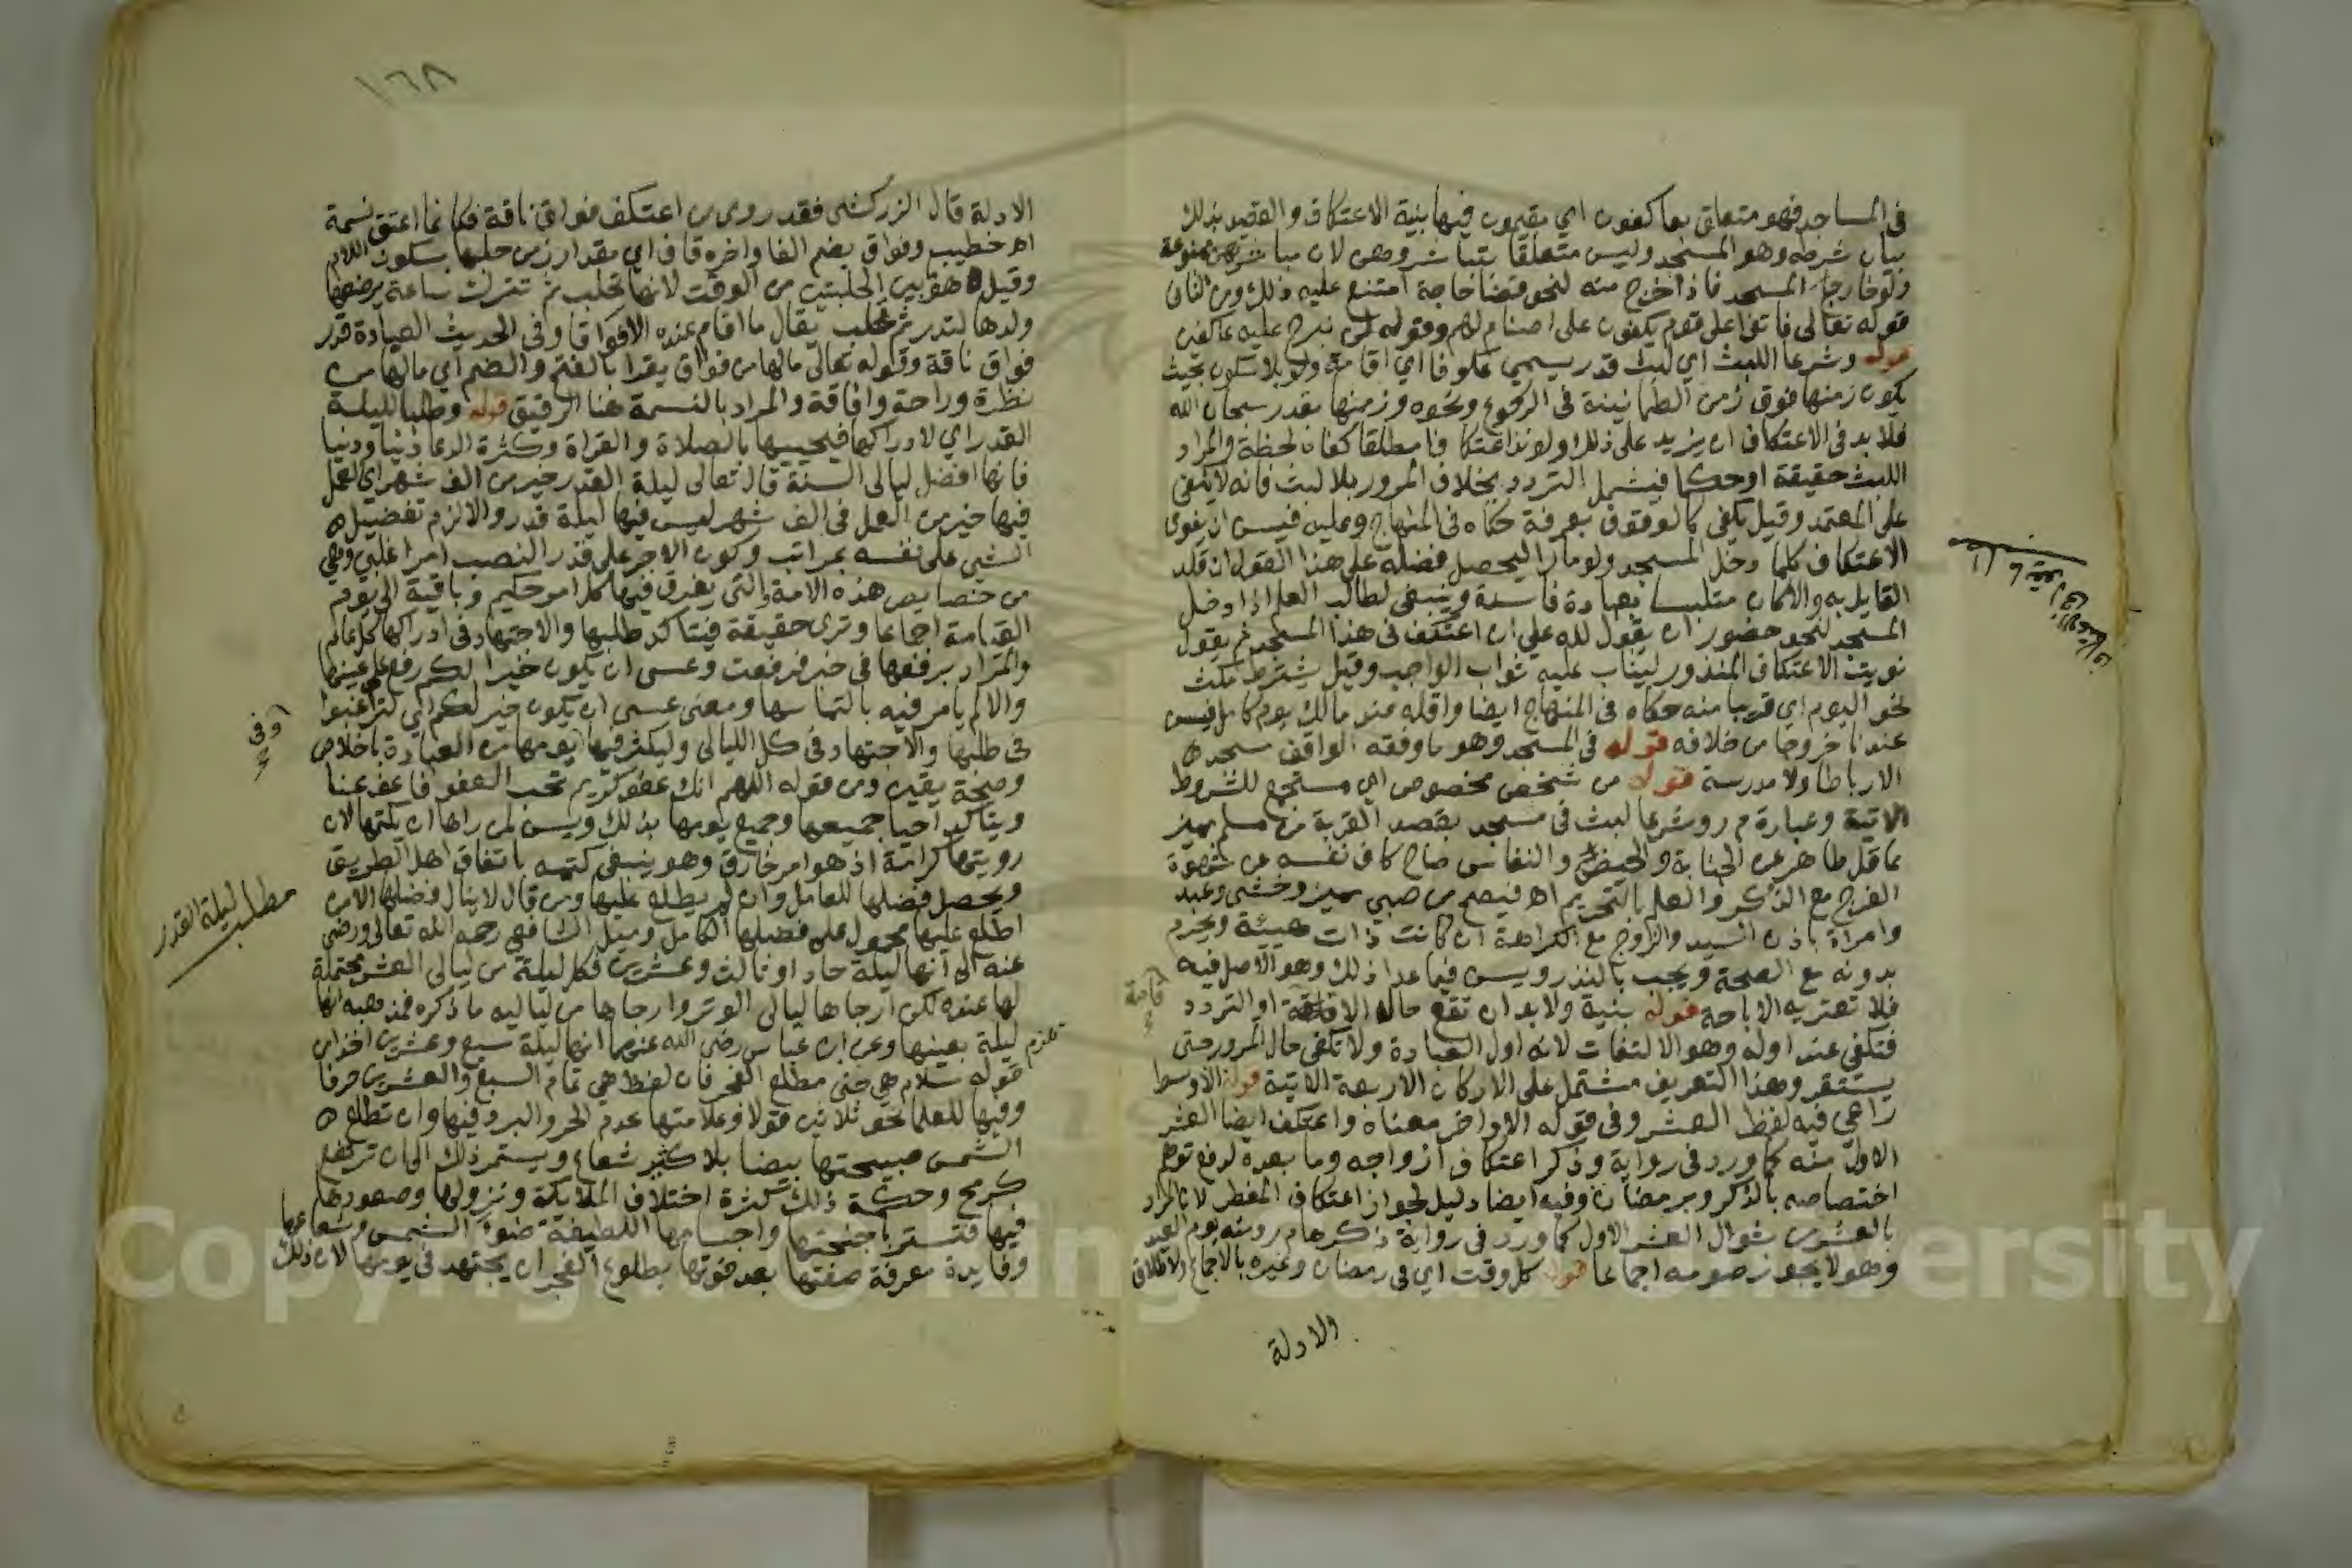 في المساجد فهو متعلق بعاكفون اي مقيمون فيها بنية الاعتكاف والقصد بذلك
بيان شرطه وهو المسجد وليس متعلقا بتباشروهن لان مباشرتهن ممنوعة
ولو خارج المسجد فاذا خرج منه لنحو قضا حاجة امتنع عليه ذلك ومن الثاني
قوله تعالى فاتوا على قوم يعكفون على اصنام لهم وقوله لن نبرح عليه عاكفين
قوله وشرعا اللبث اي لبث قدر يسمي عكوفا اي اقامة ولو بلا سكون بحيث
يكون زمنها فوق زمن الطمانينة في الركوع ونحوه وزمنها بقدر سبحان الله
فلا بد في الاعتكاف ان يزيد على ذلك ولو نذر اعتكافا مطلقا كفاه لحظة والمراد
اللبث حقيقة او حكما فيشمل التردد بخلاف المرور بلا لبث فانه لا يكفي
على المعتمد وقيل يكفي كالوقوف بعرفة حكاه في المنهاج وعليه فيسن ان ينوي
الاعتكاف كلما دخل المسجد ولو مارا ليحصل فضله على هذا القول ان قلد
القايل به والا كان متلبسا بعبادة فاسدة وينبغي لطالب العلم اذا دخل
المسجد لنحو حضور ان يقول لله علي ان اعتكف في هذا المسجد ثم يقول
نويت الاعتكاف المنذور ليثاب عليه ثواب الواجب وقيل يشترط مكث
نحو اليوم اي قريبا منه حكاه في المنهاج ايضا واقله عند مالك يوم كامل فيسن
عندنا خروجا من خلافه قوله في المسجد وهو ما وقفه الواقف مسجدا
لا رباطا ولا مدرسة قوله من شخص مخصوص اي مستجمع للشروط
الاتية وعبارة م ر وشرعا لبث في مسجد بقصد القربة من مسلم مميز
عاقل طاهر عن الجنابة والحيض والنفاس صاح كاف نفسه عن شهوة
الفرج مع الذكر والعلم بالتحريم اه فيصح من صبي مميز وخنثى وعبد
وامراة باذن السيد والزوج مع الكراهة ان كانت ذات هيئة ويحرم
بدونه مع الصحة ويجب بالنذر ويسن فيما عدا ذلك وهو الاصل فيه
فلا تعتريه الاباحة قوله بنية ولا بد ان تقع حال الاقامة او التردد
فتكفي عند اوله وهو الالتفات لانه اول العبادة ولا تكفي حال المرور حتى
يستقر وهذا التعريف مشتمل على الاركان الاربعة الاتية قوله الاوسط
راعي فيه لفظ العشر وفي قوله الاواخر معناه واعتكف ايضا العشر
الاول منه كما ورد في رواية وذكر اعتكاف ازواجه وما بعده لدفع توهم
اختصاصه بالذكر وبرمضان وفيه ايضا دليل لجواز اعتكاف المفطر لان المراد
بالعشر من شوال العشر الاول كما ورد في رواية ذكرها م ر ومنه يوم العيد
وهو لا يجوز صومه اجماعا قوله كل وقت اي في رمضان وغيره بالاجماع ولاطلاق
الادلة
الادلة قال الزركشي فقد روي من اعتكف فواق ناقة فكانما اعتق نسمة
اه خطيب وفواق بضم الفا واخره قاف اي مقدار زمن حلبها بسكون اللام
وقيل هو بين الحلبتين من الوقت لانها تحلب ثم تترك ساعة يرضعها
ولدها لتدر ثم تحلب يقال ما اقام عنده الا فواقا وفي الحديث العيادة قدر
فواق ناقة وقوله تعالى ما لها من فواق يقرا بالفتح والضم اي ما لها من
نظرة وراحة وافاقة والمراد بالنسمة هنا الرقيق قوله وطلبا لليلة
القدر اي لادراكها فيحييها بالصلاة والقراة وكثرة الدعا دينا ودنيا
فانها افضل ليالى السنة قال تعالى ليلة القدر خير من الف شهر اي العمل
فيها خير من العمل في الف شهر ليس فيها ليلة قدر والا لزم تفضيل
الشي على نفسه بمراتب وكون الاجر على قدر النصب امرا غلبي وهي
من خصايص هذه الامة والتي يفرق فيها كل امر حكيم وباقية الى يوم
القيامة اجماعا وترى حقيقة فيتاكد طلبها والاجتهاد في ادراكها كل عام
والمراد برفعها في خبر فرفعت وعسى ان يكون خيرا لكم رفع علم عينها
والا لم يامر فيه بالتماسها ومعنى عسى ان يكون خير لكم اي لترغبوا
في طلبها والاجتهاد في كل الليالى وليكثر فيها يومها من العبادة باخلاص
وصحة يقين ومن قوله اللهم انك عفو كريم تحب العفو فاعف عنا
ويتاكد احيا جميعها وجميع يومها بذلك ويسن لمن راها ان يكتمها لان
رويتها كرامة اذ هو امر خارق وهو ينبغي كتمه باتفاق اهل الطريق
ويحصل فضلها للعامل وان لم يطلع عليها ومن قال لا ينال فضلها الا من
اطلع عليها محمول على فضلها الكامل وميل الشافعي رحمه الله تعالى ورضي
عنه الى انها ليلة حاد او ثالث وعشرين فكل ليلة من ليالى العشر محتملة
لها عنده لكن ارجاها ليالى الوتر وارجاها من لياليه ما ذكره فمذهبه انها
تلزم ليلة بعينها وعن ابن عباس رضي الله عنهما انها ليلة سبع وعشرين اخذا من
قوله سلام هي حتى مطلع الفجر فان لفظ هي تمام السبع والعشرين حرفا
وفيها للعلما نحو ثلاثين قولا وعلامتها عدم الحر والبرد فيها وان تطلع
الشمس صبيحتها بيضا بلا كثير شعاع ويستمر ذلك الى ان ترتفع
كرمح وحكمة ذلك كثرة اختلاف الملايكة ونزولها وصعودها
فيها فتستر باجنحتها واجسامها اللطيفة ضوء الشمس وشعاعها
وفايدة معرفة صفتها بعد فوتها بطلوع الفجر ان يجتهد في يومها لان ذلك
١٦٨
وفي
مطلب ليلة القدر
قامة
Copyright © King Saud University